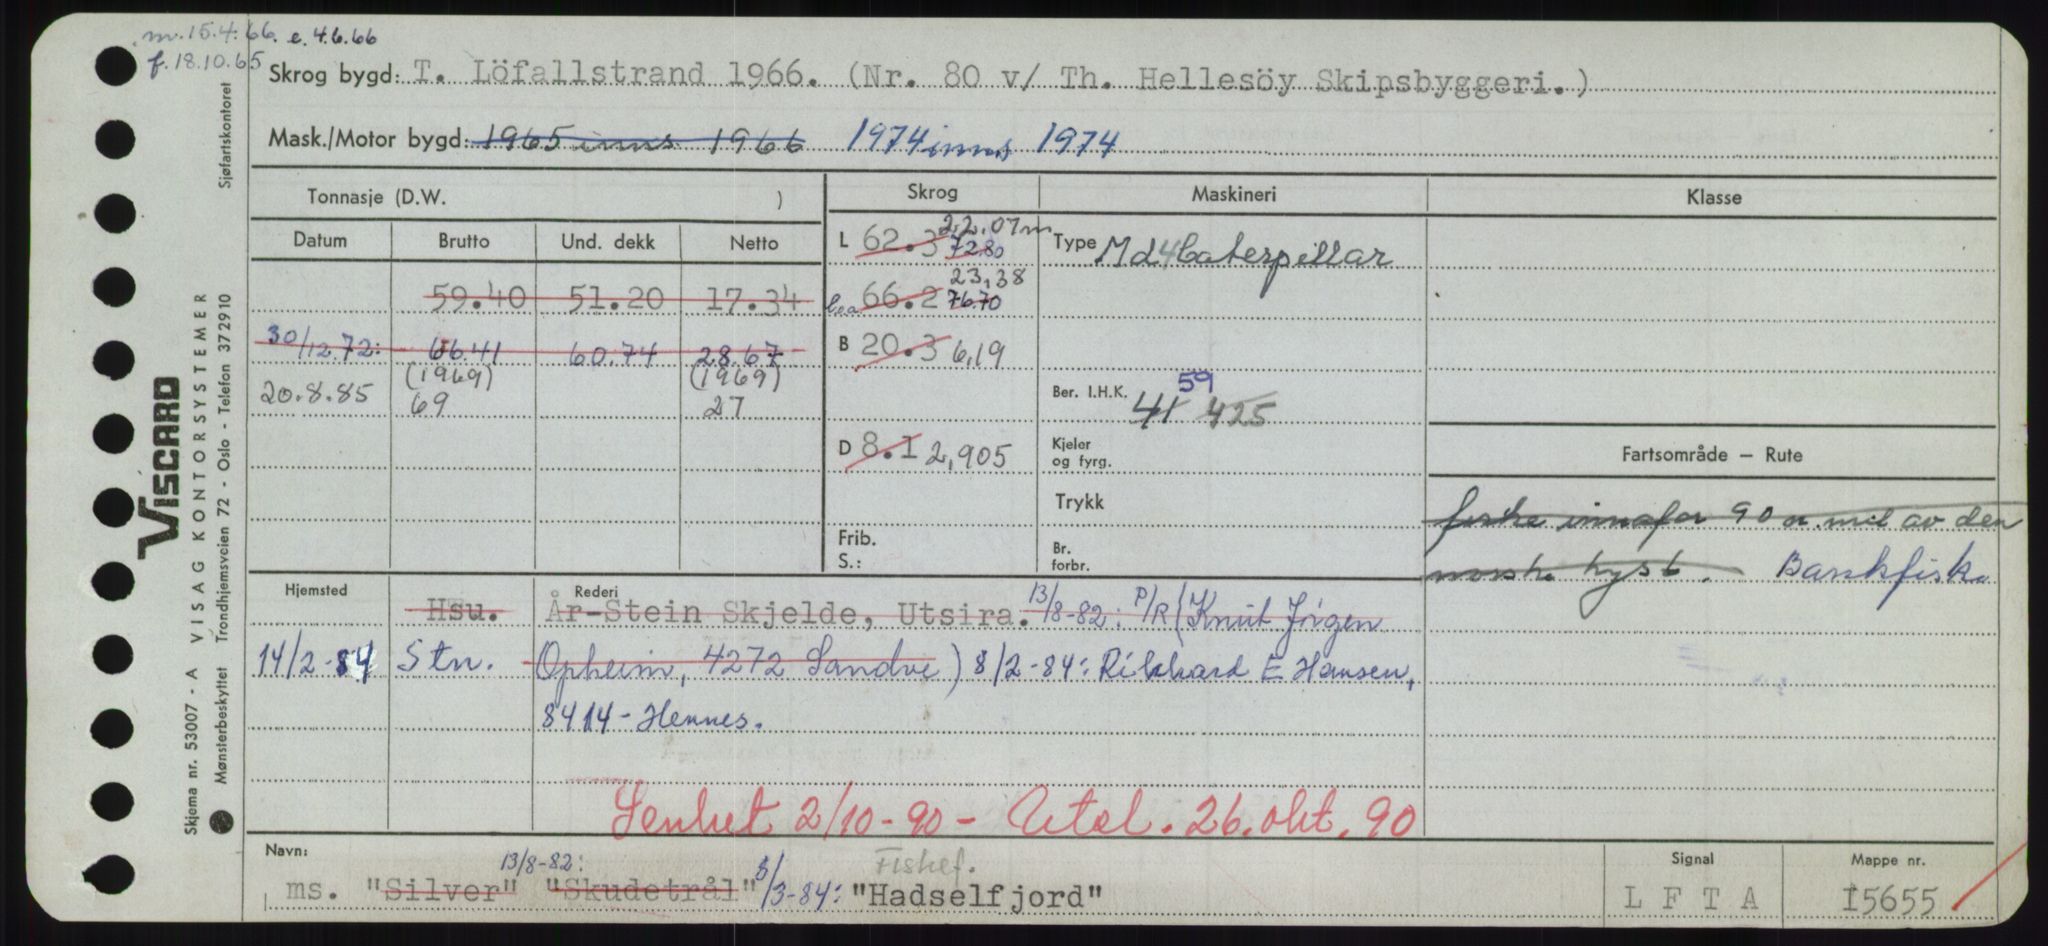 m. 15.4.66. e. 4.6.66
f. 18.10.65
Skrog bygd: T. Löfallstrand 1966. (Nr. 80 v/ Th. Hellesöy Skipsbyggeri.)
Mask./Motor bygd: 1965 inns 1966 1974 inns 1974
Tonnasje (D.W. )
Skrog Maskineri Klasse
Datum Brutto Und. dekk Netto
L 62.3 72.80 22,07m
Type Md4 Caterpillar
59.40 51.20 17.34
loa 66.2 76.70 23,38
30/12.72: 66.41 60.74 28.67
B 20.3 6,19
(1969) (1969)
20.8.85 69 27
Ber. I.H.K. 41 59 425
D 8.1 2,905
Kjeler
og fyrg.
Fartsområde – Rute
Trykk
fiske innafor 90 n. mil av den
norske kyst. Bankfiske
Frib.
S.:
Br.
forbr.
Hjemsted Rederi
Hsu. År-Stein Skjelde, Utsira. 13/8-82: P/R (Knut Jörgen
14/2-84 Stn. Opheim, 4272 Sandve) 8/2-84: Rikhard E Hansen,
8414 - Hennes.
Senket 2/10-90 - Utsl. 26. okt. 90
Navn: Signal Mappe nr.
13/8-82: Fiskef.
ms. "Silver" "Skudetrål" 8/3-84: "Hadselfjord" L F T A 15655
VISCARD
VISAG KONTORSYSTEMER
Skjema nr. 53007 - A
Mønsterbeskyttet Trondhjemsveien 72 - Oslo - Telefon 372910 Sjøfartskontoret